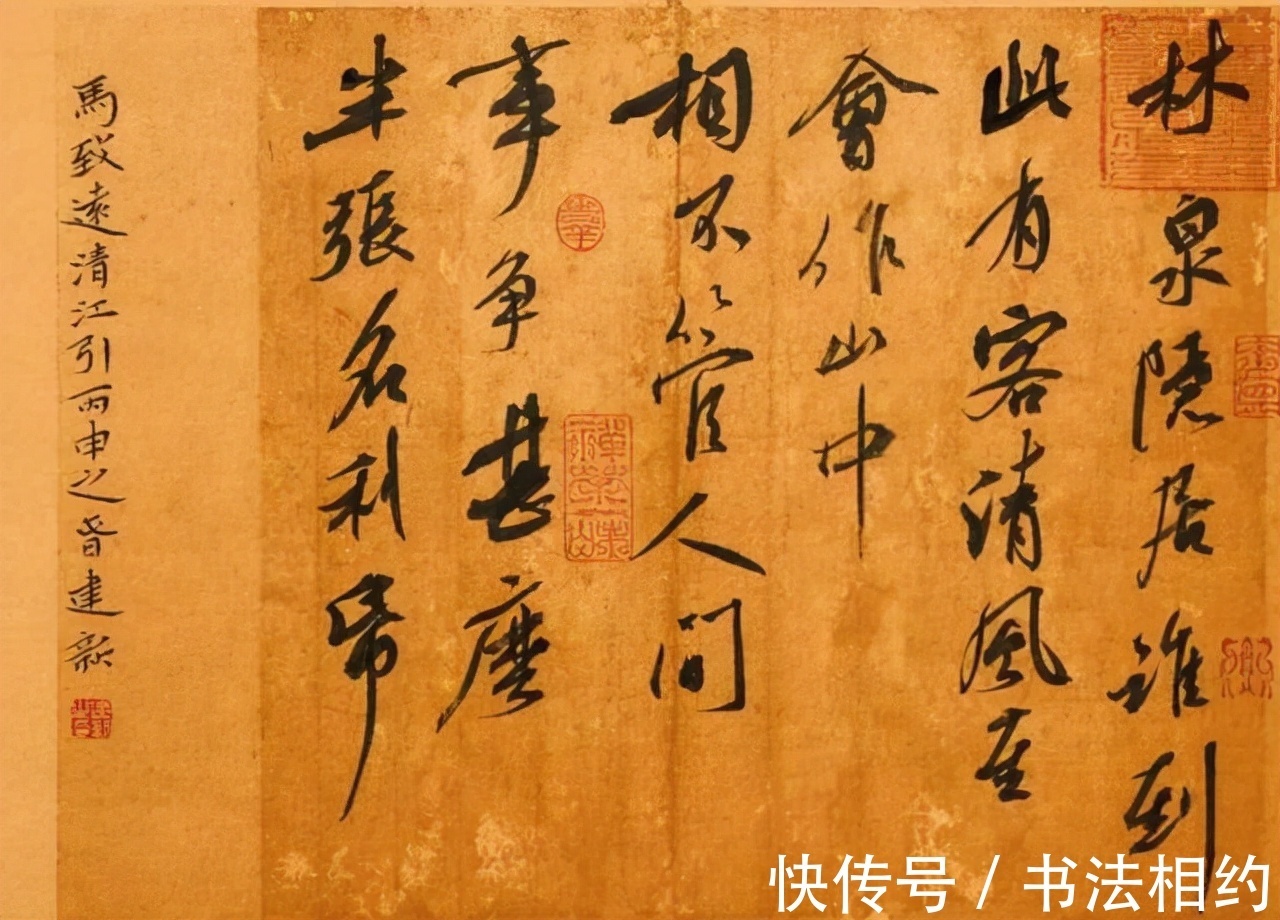 林泉隱居誰到
此有客清風至
會作山中
相不管人間
事争甚麼
半張名利帋
馬致遠清江引丙申之春建新
快传号 / 书法相约